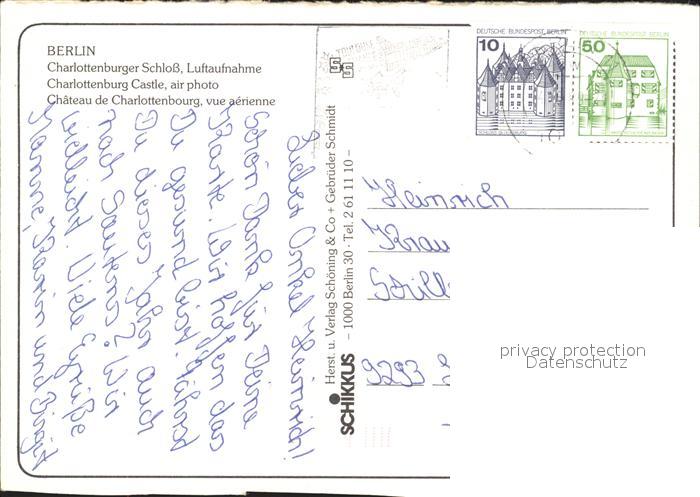 BERLIN
Charlottenburger Schloß, Luftaufnahme
Charlottenburg Castle, air photo
Château de Charlottenbourg, vue aérienne
Lieber Onkel Heinrich!
Schön Dank für Deine
Karte. Wir hoffen das
Du gesund bist. Fährst
Du dieses Jahr auch
nach Sautens? Wir
vielleicht. Viele Grüße
Hanne, Karin und Birgit
SCHIKKUS
Herst. u. Verlag Schöning & Co + Gebrüder Schmidt
– 1000 Berlin 30 · Tel. 2 61 11 10 –
DEUTSCHE BUNDESPOST BERLIN
10
SCHLOSS GLÜCKSBURG
DEUTSCHE BUNDESPOST BERLIN
50
Heinrich
Krau
Still
9293
privacy protection
Datenschutz